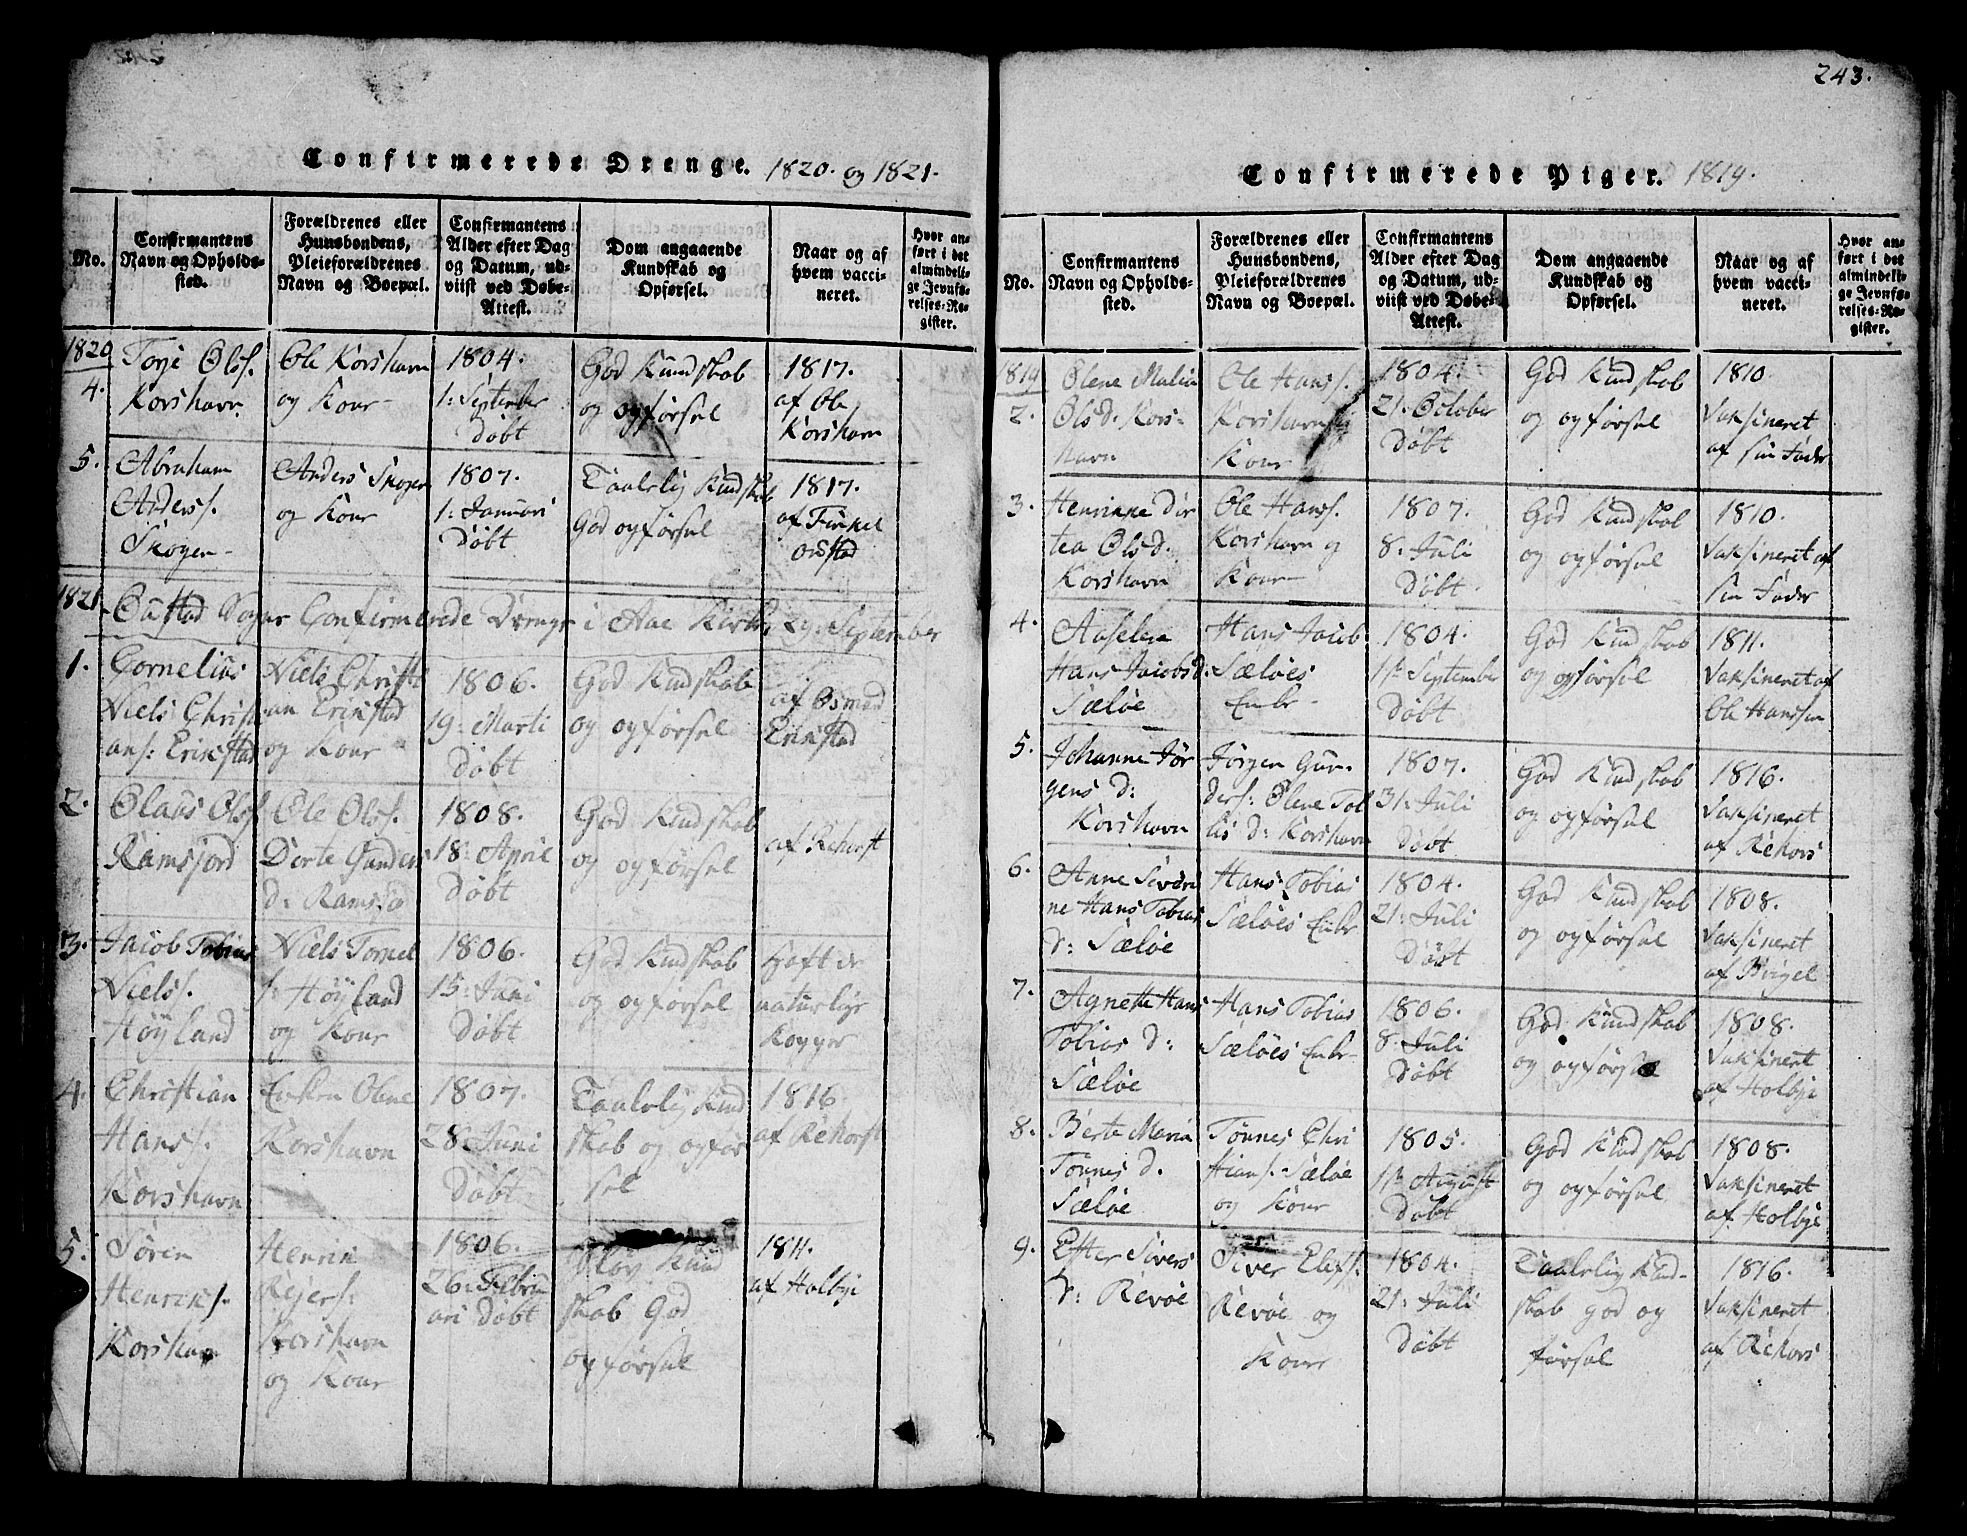 243.
Confirmerede Drenge. 1820. og 1821.
No.
Confirmantens
Navn og Opholds-
sted.
Forældrenes eller
Huusbondens,
Pleieforældrenes
Navn og Boepæl.
Confirmantens
Alder efter Dag
og Datum, ud-
viist ved Døbe-
Attest.
Dom angaaende
Kundskab og
Opførsel.
Naar og af
hvem vacci-
neret.
Hvor an-
ført i det
almindeli-
ge Jevnfø-
relses-Re-
gister.
1820
4.
Torje Ols.
Korshavn
Ole Korshavn
og Kone
1804.
1: September
Døbt
God Kundskab
og opførsel
1817.
af Ole
Korshavn
5.
Abraham
Anders.
Skogen
Anders Skogen
og Kone
1807.
1: Januari
Døbt
Taalelig Kundskab
God opførsel
1817.
af Tinkel
Oustad
1821
Oustad Sogns Confirmerede Drenge i Aae Kirke 29: September
1.
Cornelius
Niels Christi
ans: Erikstad
Niels Christi
an Erikstad
og Kone
1806.
19: Marti
Døbt
God Kundskab
og opførsel
af Osmod
Erikstad
2.
Olaus Ols.
Ramsjord
Ole Ols.
Dorte Gunders
d: Ramsjo
1808.
18: April
Døbt
God Kundskab
og opførsel
af Rehorst
3.
Jacob Tobias
Niels.
Höyland
Niels Tornel
s: Höyland
og Kone
1806.
15: Juni
Døbt
God Kundskab
og opførsel
Haft de
naturlige
Kopper
4.
Christian
Hans.
Korshavn
Enken Olene
Korshavn
1807.
28: Juni
Døbt
Taalelig Kund
skab og opfør
sel
1816
af Rehorst
5.
Sören
Henriks.
Korshavn
Henrik
Rejers:
Korshavn
og Kone
1806.
26: Febru
ari Døbt
Slov Kund
skab God
opførsel
1811.
af Holbye
Confirmerede Piger. 1819.
No.
Confirmantens
Navn og Opholds-
sted.
Forældrenes eller
Huusbondens,
Pleieforældrenes
Navn og Boepæl.
Confirmantens
Alder efter Dag
og Datum, ud-
viist ved Døbe-
Attest.
Dom angaaende
Kundskab og
Opførsel.
Naar og af
hvem vacci-
neret.
Hvor an-
ført i det
almindeli-
ge Jevnfø-
relses-Re-
gister.
1819
2.
Olene Malia
Olsd. Kors-
havn
Ole Hans.
Korshavn og
Kone
1804.
21: October
Døbt
God Kundskab
og opførsel
1810.
Vaksineret
af sin Fader
3.
Henrikke Dor
tea Olsd.
Korshavn
Ole Hans.
Korshavn og
Kone
1807.
8: Juli
Døbt
God Kundskab
og opførsel
1810.
Vaksineret af
sin Fader
4.
Aaselen
Hans Jacobsd:
Sæløe
Hans Jacob
Sæløes
Enke
1804.
1te September
Døbt
God Kundskab
og opførsel
1811.
Vaksineret af
Ole Hanssen
5.
Johanne Jör
gens d:
Korshavn
Jörgen Gun-
ders: Olene Tol
lis d: Korshavn
1807.
31: Juli
Døbt
God Kundskab
og opførsel
1816.
Vaksineret
af Rehors
6.
Anne Severi
ne Hans Tobias
d: Sæløe
Hans Tobias
Sæløes Enke
1804.
21: Juli
Døbt
God Kundskab
og opførsel
1808.
Vaksineret
af Birgel
7.
Agnette Hans
Tobias d:
Sæløe
Hans Tobias
Sæløes Enke
1806.
8: Juli
Døbt
God Kundskab
og opførsel
1808.
Vaksineret
af Holbye
8.
Berte Maria
Tönnes d.
Sæløe
Tönnes Chri
stians. Sæløe
og Kone
1805.
1te August
Døbt
God Kundskab
og opførsel
1808.
Vaksineret
af Holbye
9.
Ester Sivers
d: Revöe
Siver Elefs.
Revöe og
Kone
1804.
21: Juli
Døbt
Taalelig Kund-
skab god op
førsel
1816.
Vaksineret
af Rehors